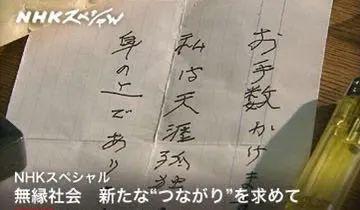 NHKスペシャル
お手数かけま
私は天涯孤独
身の上であり
NHKスペシャル
無縁社会 新たな“つながり”を求めて